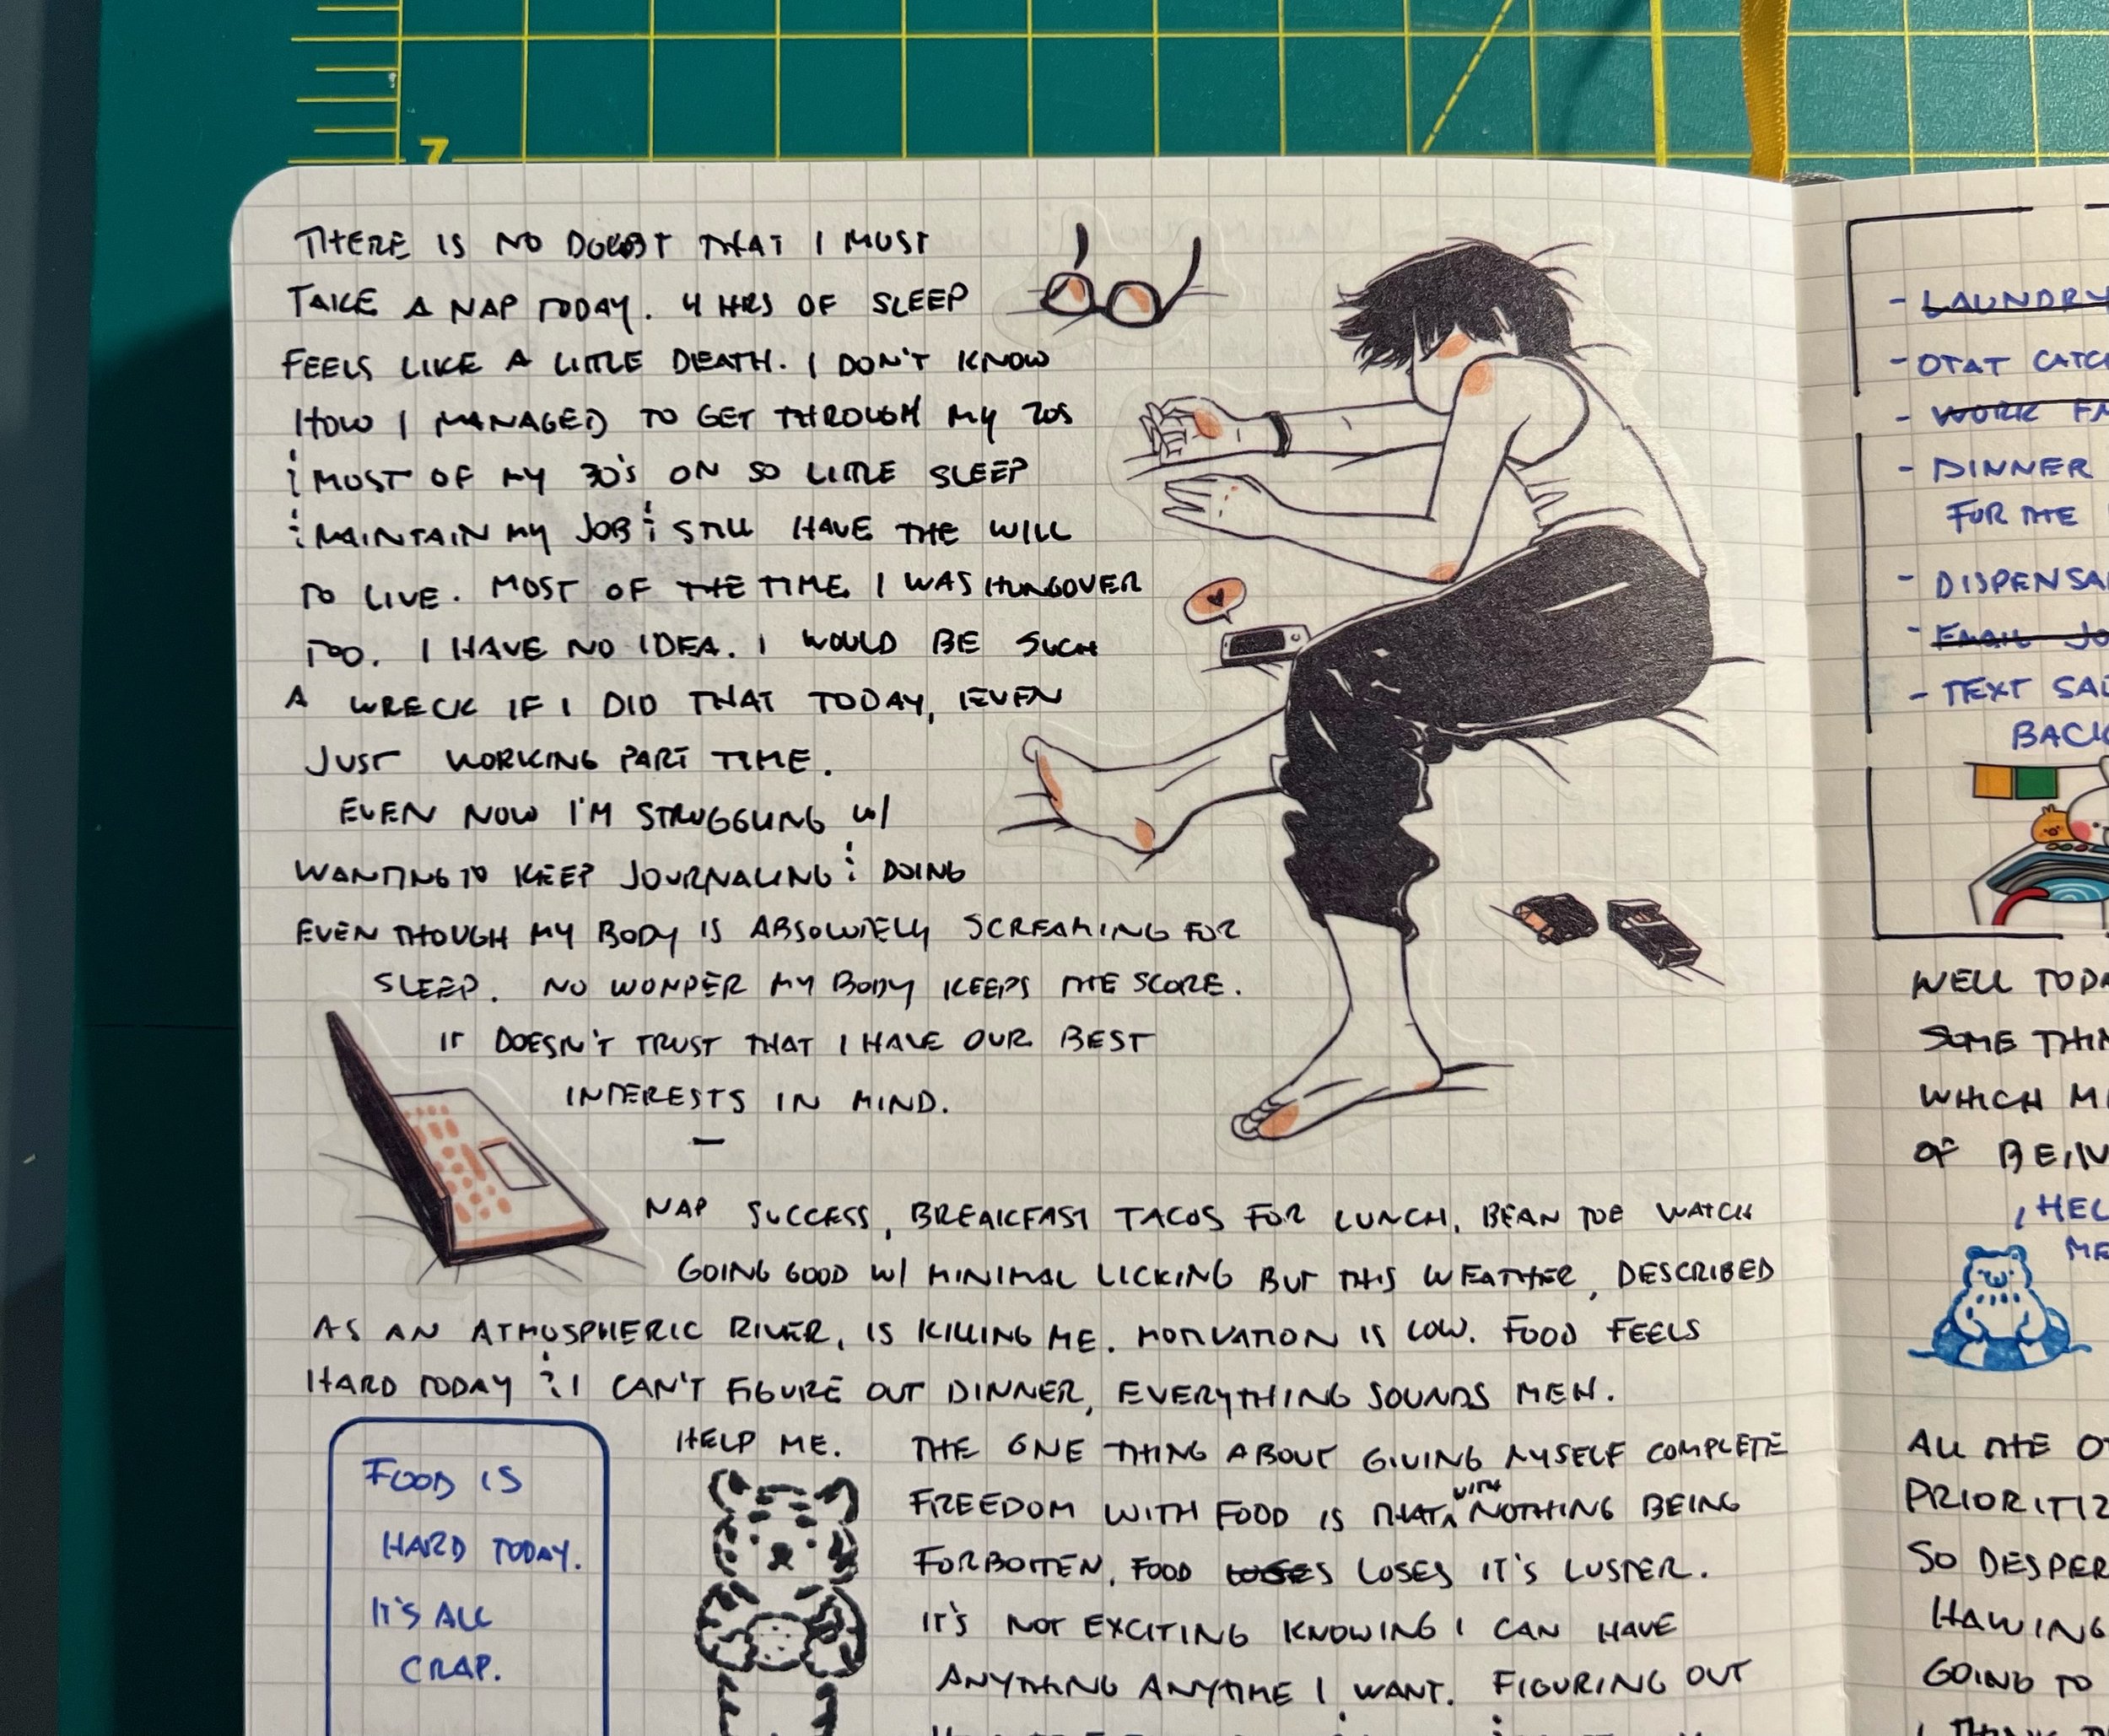 7
THERE IS NO DOUBT THAT I MUST
TAKE A NAP TODAY. 4 HRS OF SLEEP
FEELS LIKE A LITTLE DEATH. I DON'T KNOW
HOW I MANAGED TO GET THROUGH MY 20S
& MOST OF MY 30'S ON SO LITTLE SLEEP
& MAINTAIN MY JOB & STILL HAVE THE WILL
TO LIVE. MOST OF THE TIME I WAS HUNGOVER
TOO. I HAVE NO IDEA. I WOULD BE SUCH
A WRECK IF I DID THAT TODAY, EVEN
JUST WORKING PART TIME.
EVEN NOW I'M STRUGGLING W/
WANTING TO KEEP JOURNALING & DOING
EVEN THOUGH MY BODY IS ABSOLUTELY SCREAMING FOR
SLEEP. NO WONDER MY BODY KEEPS THE SCORE.
IT DOESN'T TRUST THAT I HAVE OUR BEST
INTERESTS IN MIND.
—
NAP SUCCESS, BREAKFAST TACOS FOR LUNCH, BEAN TOE WATCH
GOING GOOD W/ MINIMAL LICKING BUT THIS WEATHER, DESCRIBED
AS AN ATMOSPHERIC RIVER, IS KILLING ME. MOTIVATION IS LOW. FOOD FEELS
HARD TODAY & I CAN'T FIGURE OUT DINNER, EVERYTHING SOUNDS MEH.
FOOD IS
HARD TODAY.
IT'S ALL
CRAP.
HELP ME.
THE ONE THING ABOUT GIVING MYSELF COMPLETE
FREEDOM WITH FOOD IS THAT WITH NOTHING BEING
FORBOTTEN, FOOD LOSES IT'S LUSTER.
IT'S NOT EXCITING KNOWING I CAN HAVE
ANYTHING ANYTIME I WANT. FIGURING OUT
- LAUNDRY
- OTAT CATC
- WORK
- DINNER
FOR THE
- DISPENSA
- EMAIL JO
- TEXT SA
BACK
WELL TODA
SOME THIN
WHICH M
OF BEIN
HEL
ME
ALL THE O
PRIORITIZ
SO DESPER
HAWING
GOING TO